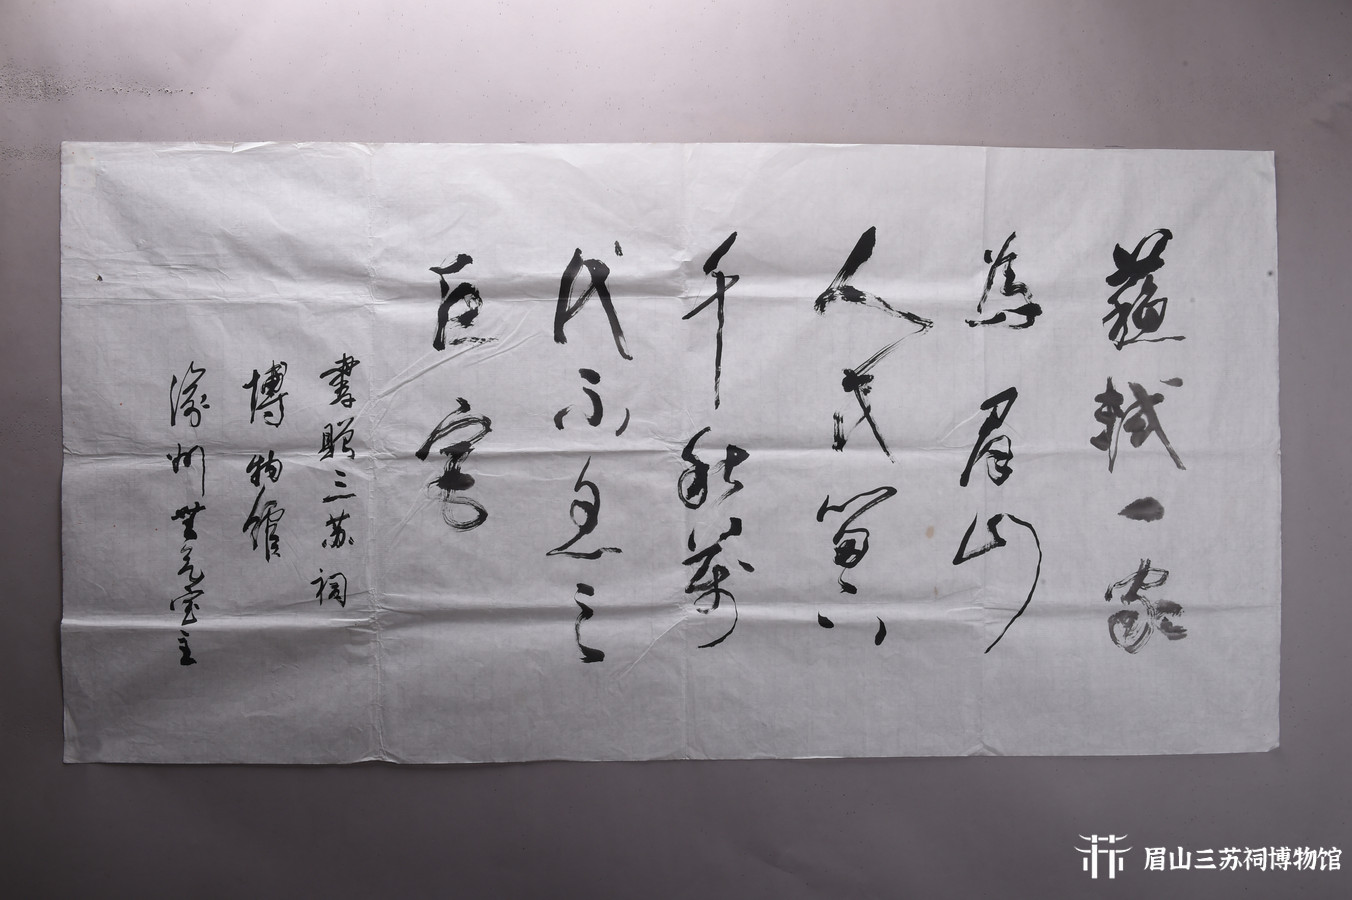 蘇軾一家
為眉山
人民留下
千秋萬
代不息之
巨富
書贈三苏祠
博物館
渝州無室主
眉山三苏祠博物馆